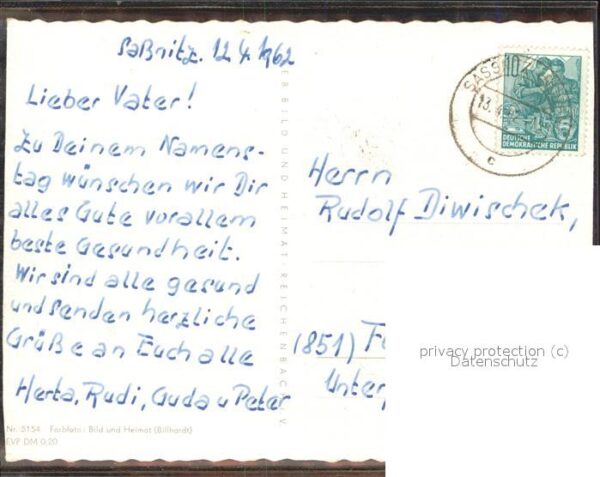 Saßnitz. 12.4.1962
Lieber Vater!
Zu Deinem Namens-
tag wünschen wir Dir
alles Gute vorallem
beste Gesundheit.
Wir sind alle gesund
und senden herzliche
Grüße an Euch alle
Herta, Rudi, Guda u Peter
Nr. 5154 Farbfoto: Bild und Heimat (Billhardt)
EVP DM 0,20
BILD UND HEIMAT REICHENBACH
SASS
13.4.
c
10
5
DEUTSCHE
DEMOKRATISCHE REPUBLIK
Herrn
Rudolf Diwischek,
(851)
Unter
privacy protection (c)
Datenschutz